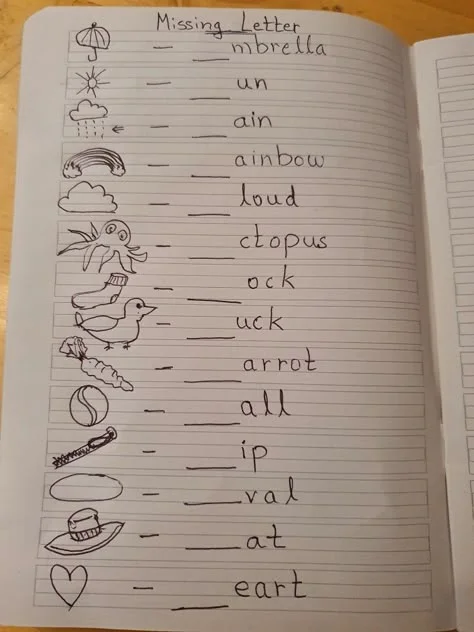 Missing Letter
— ___mbrella
— ___un
— ___ain
— ___ainbow
— ___loud
— ___ctopus
___ock
— ___uck
— ___arrot
— ___all
— ___ip
— ___val
— ___at
— ___eart